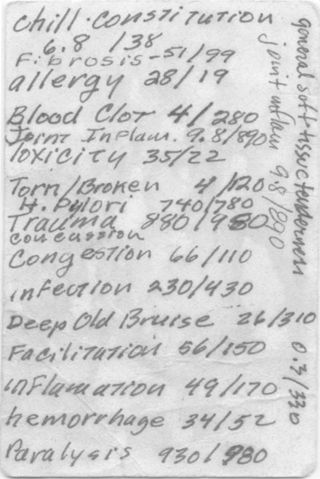 chill-constitution
6.8 / 38
Fibrosis - 51/99
allergy 28/19
Blood Clot 4/280
Joint Inflam. 9.8/890
Toxicity 35/22
Torn/Broken 4/120
H. Pylori 740/780
Trauma 880/980
concussion
Congestion 66/110
infection 230/430
Deep Old Bruise 26/310
Facilitation 56/150
inflamation 49/170
hemorrhage 34/52
Paralysis 930/980
general soft tissue 0.3/330
joint inflam 9.8/890